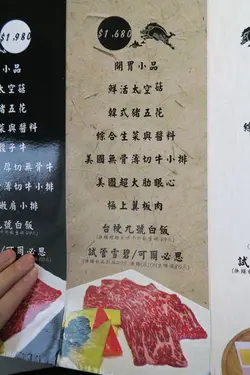 $1,980
小品
太空菇
豬五花
菜與醬料
骰子牛
厚切無骨牛
骨薄切牛小排
嫩肩小排
九號白飯
可爾必思
$1,680
開胃小品
鮮活太空菇
韓式豬五花
綜合生菜與醬料
美國無骨薄切牛小排
美國超大肋眼心
極上翼板肉
台梗九號白飯
試管雪碧/可爾必思